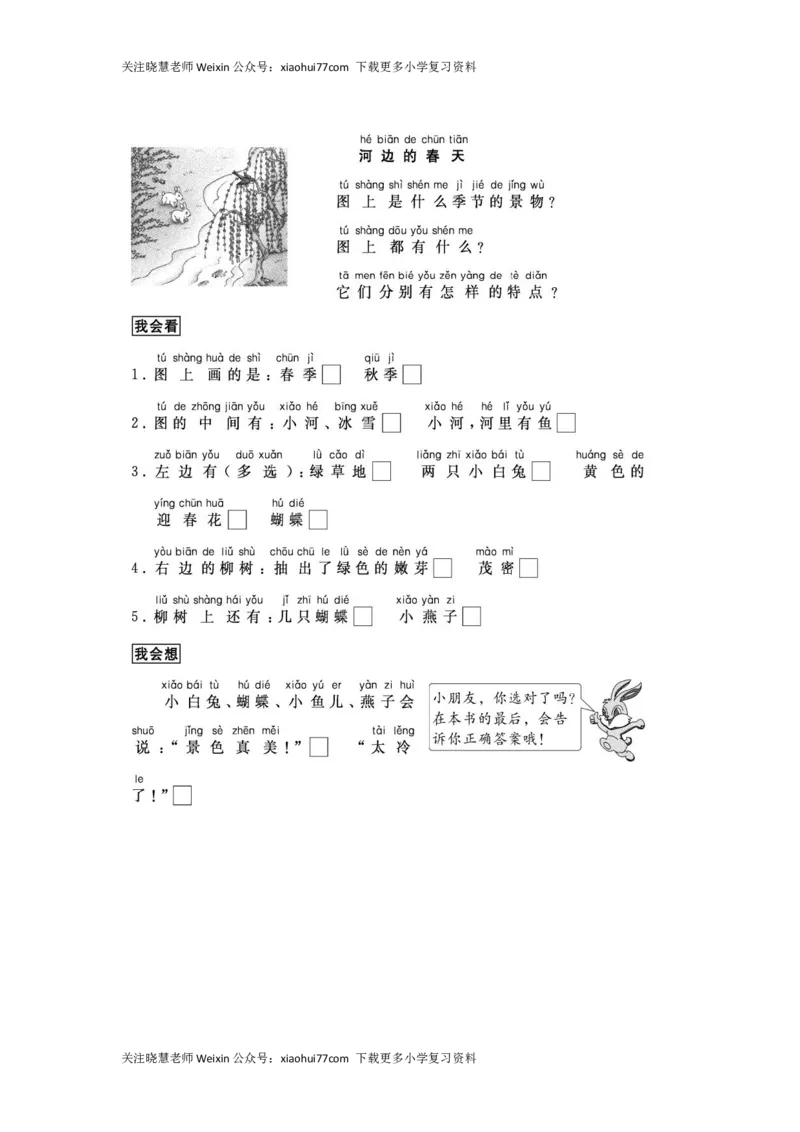 关注晓慧老师 Weixin 公众号：xiaohui77com 下载更多小学复习资料
hé biān de chūn tiān
河 边 的 春 天
tú shàng shì shén me jì jié de jǐng wù
图 上 是 什 么 季 节 的 景 物 ?
tú shàng dōu yǒu shén me
图 上 都 有 什 么 ?
tā men fēn bié yǒu zěn yàng de tè diǎn
它 们 分 别 有 怎 样 的 特 点 ?
我会看
tú shàng huà de shì chūn jì qiū jì
1. 图 上 画 的 是 : 春 季 □ 秋 季 □
tú de zhōng jiān yǒu xiǎo hé bīng xuě xiǎo hé hé lǐ yǒu yú
2. 图 的 中 间 有 : 小 河 、冰 雪 □ 小 河 , 河 里 有 鱼 □
zuǒ biān yǒu duō xuǎn lǜ cǎo dì liǎng zhī xiǎo bái tù huáng sè de
3. 左 边 有 ( 多 选 ) : 绿 草 地 □ 两 只 小 白 兔 □ 黄 色 的
yíng chūn huā hú dié
迎 春 花 □ 蝴 蝶 □
yòu biān de liǔ shù chōu chū le lǜ sè de nèn yá mào mì
4. 右 边 的 柳 树 : 抽 出 了 绿 色 的 嫩 芽 □ 茂 密 □
liǔ shù shàng hái yǒu jǐ zhī hú dié xiǎo yàn zi
5. 柳 树 上 还 有 : 几 只 蝴 蝶 □ 小 燕 子 □
我会想
xiǎo bái tù hú dié xiǎo yú er yàn zi huì
小 白 兔 、蝴 蝶 、小 鱼 儿 、燕 子 会
shuō jǐng sè zhēn měi tài lěng
说 : “ 景 色 真 美 ! ” □ “ 太 冷
le
了 ! ” □
小朋友，你选对了吗?
在本书的最后，会告
诉你正确答案哦!
关注晓慧老师 Weixin 公众号：xiaohui77com 下载更多小学复习资料